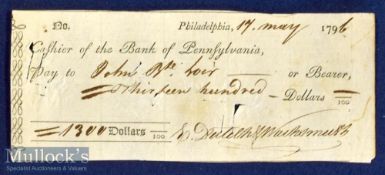 No. Philadelphia, 17 May 1796
Cashier of the Bank of Pennsylvania,
Pay to John Bte. or Bearer,
Thirteen hundred Dollars /100
1300 Dollars /100
Mullock's
Specialist Auctioneers & Valuers